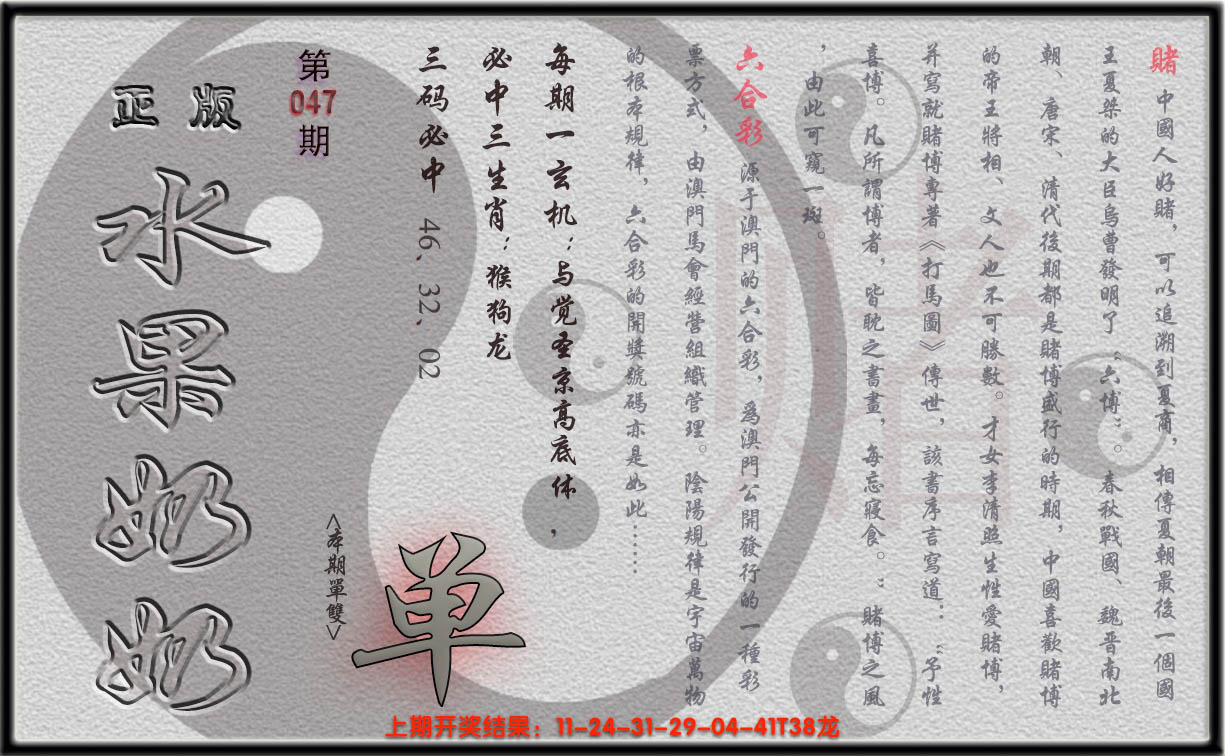 賭 中國人好賭，可以追溯到夏商，相傳夏朝最後一個國
王夏桀的大臣烏曹發明了“六博”。春秋戰國、魏晉南北
朝、唐宋、清代後期都是賭博盛行的時期，中國喜歡賭博
的帝王將相、文人也不可勝數。才女李清照生性愛賭博，
并寫就賭博專著《打馬圖》傳世，該書序言寫道：“予性
喜博。凡所謂博者，皆耽之書畫，每忘寢食。”賭博之風
，由此可窺一斑。
六合彩 源于澳門的六合彩，爲澳門公開發行的一種彩
票方式，由澳門馬會經營組織管理。陰陽規律是宇宙萬物
的根本規律，六合彩的開獎號碼亦是如此……
每期一玄机：与觉圣京高底休，
必中三生肖：猴狗龙
三码必中 46、32、02
<本期單雙>
单
第
047
期
正版
水果奶奶
赌
上期开奖结果：11-24-31-29-04-41T38龙